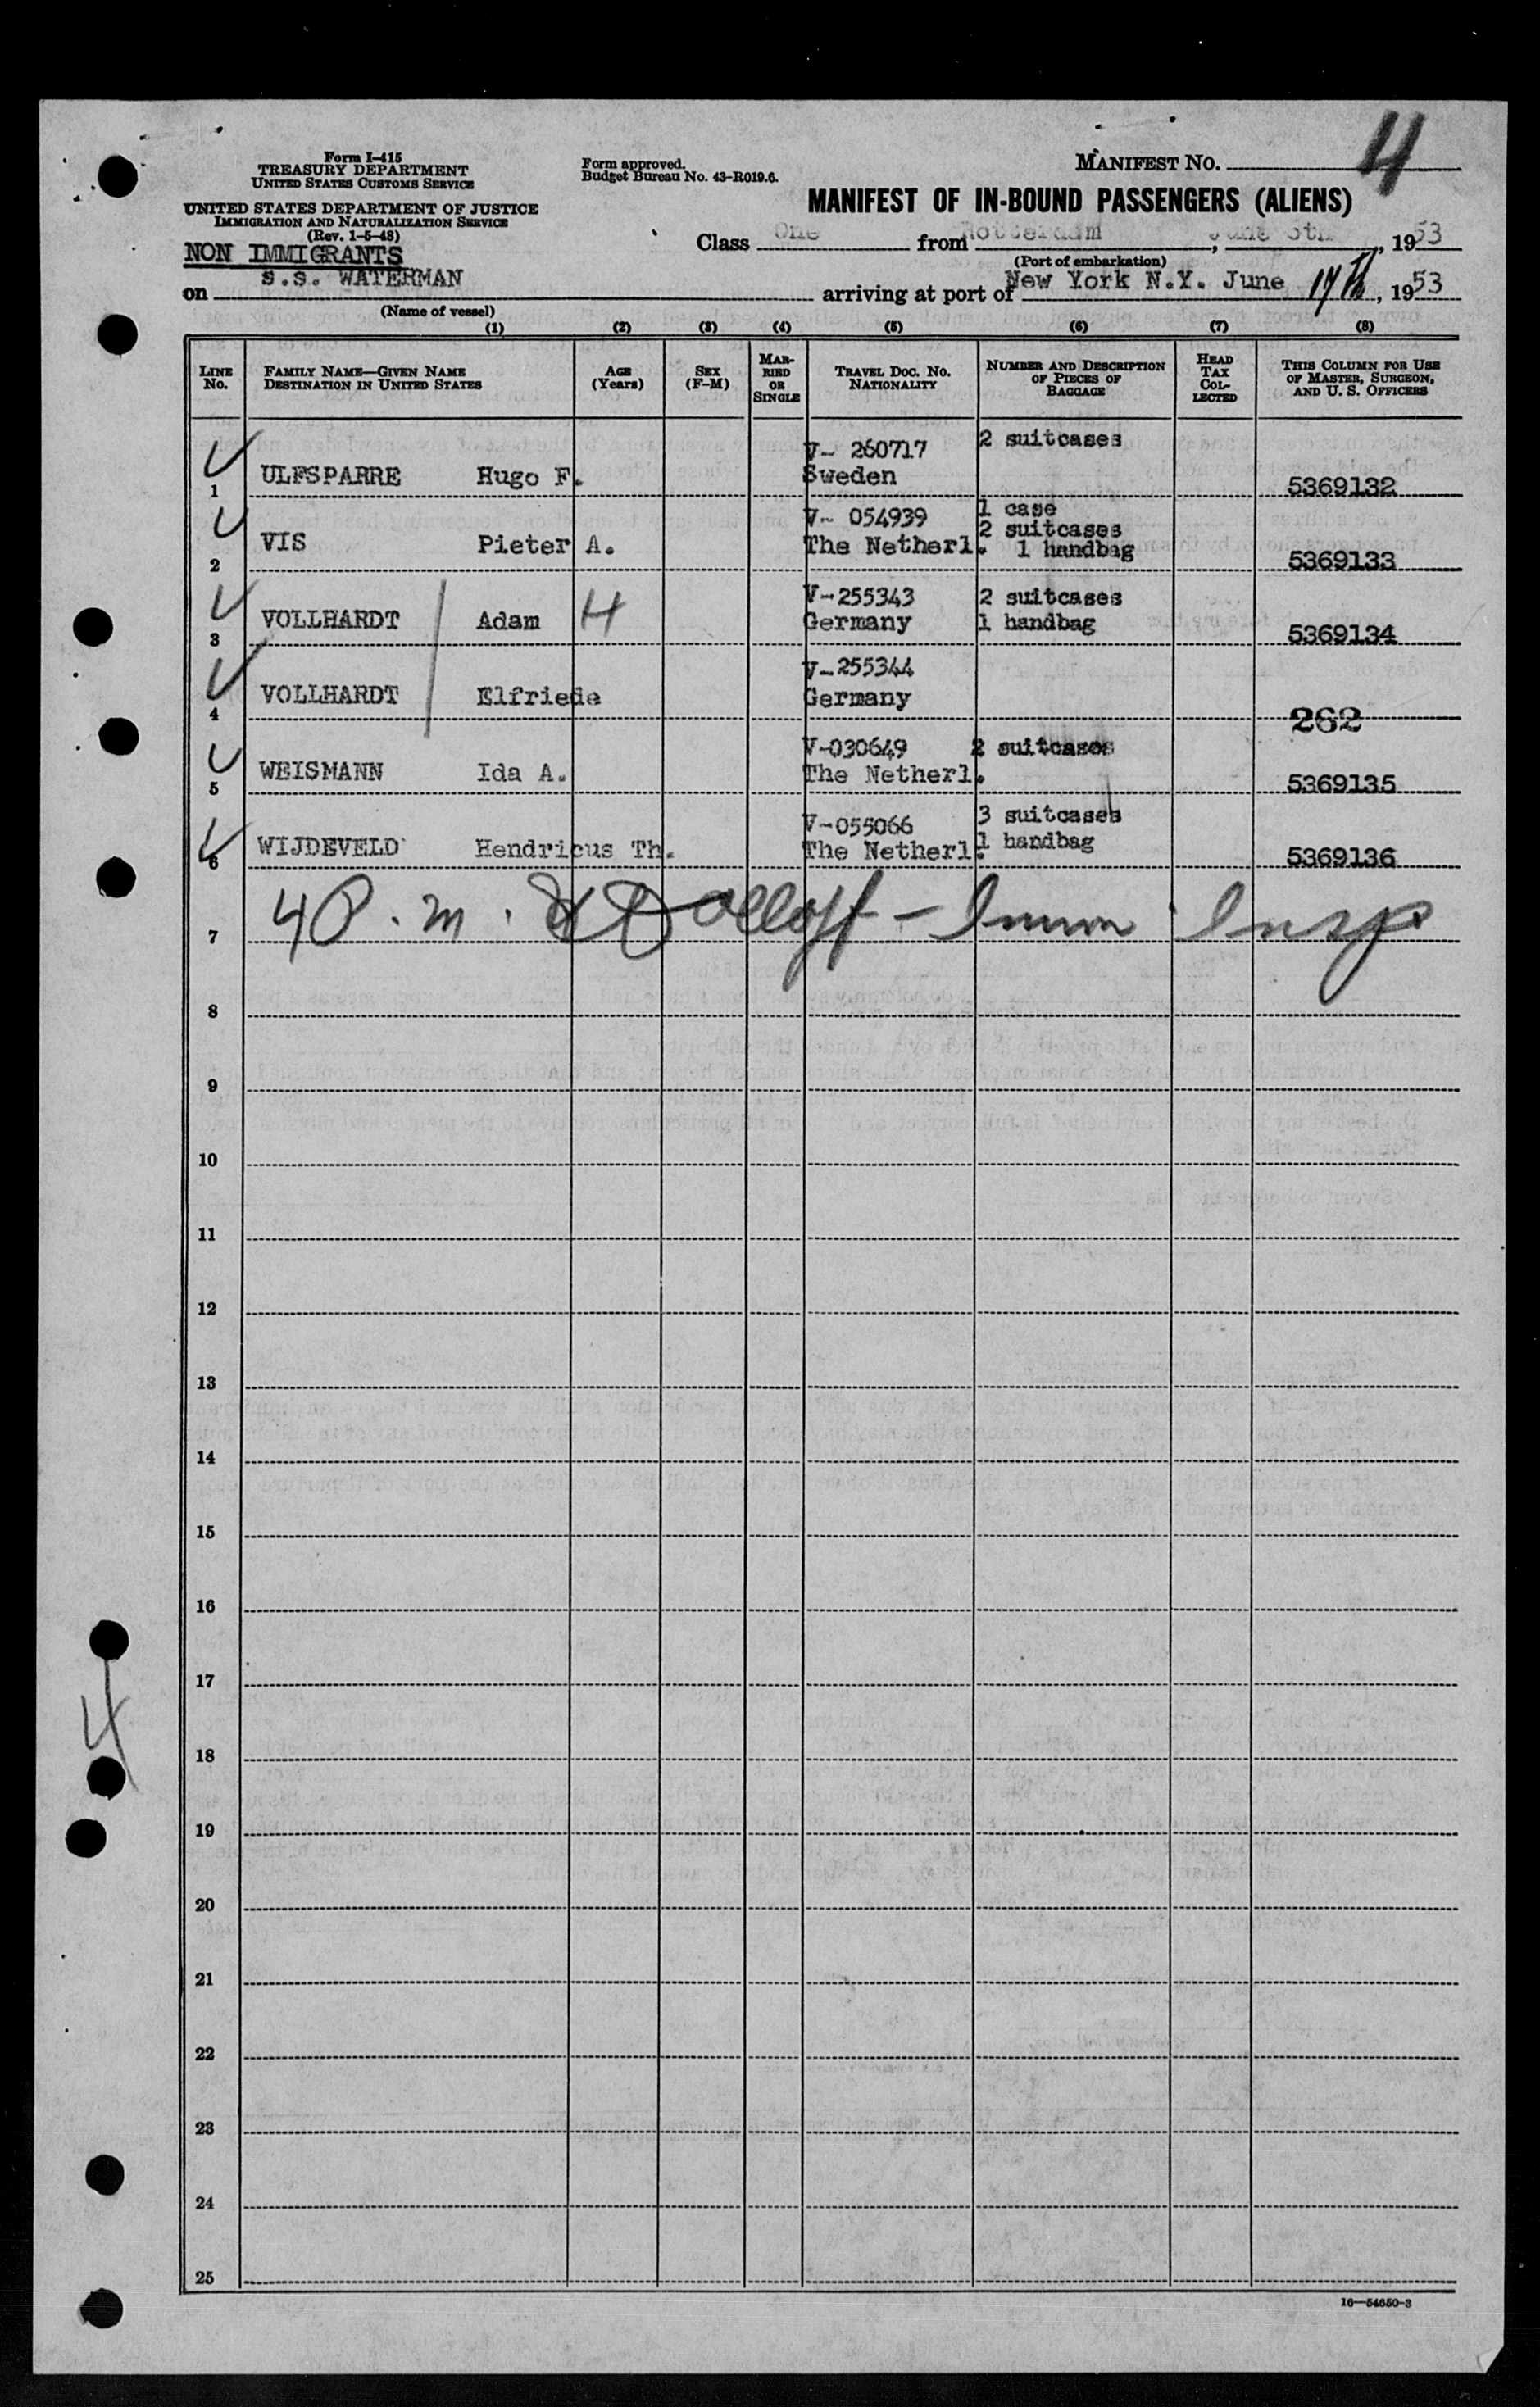 4
Form I-415
TREASURY DEPARTMENT
UNITED STATES CUSTOMS SERVICE
UNITED STATES DEPARTMENT OF JUSTICE
IMMIGRATION AND NATURALIZATION SERVICE
(Rev. 1-5-48)
NON IMMIGRANTS
Form approved.
Budget Bureau No. 43-R019.6.
MANIFEST NO.
MANIFEST OF IN-BOUND PASSENGERS (ALIENS)
Class One from Rotterdam, June 5th, 1953
(Port of embarkation)
on s.s. WATERMAN arriving at port of New York N.Y. June, 1953
(Name of vessel)
(1) (2) (3) (4) (5) (6) (7) (8)
LINE No. FAMILY NAME—GIVEN NAME DESTINATION IN UNITED STATES AGE (Years) SEX (F-M) MARRIED OR SINGLE TRAVEL DOC. NO. NATIONALITY NUMBER AND DESCRIPTION OF PIECES OF BAGGAGE HEAD TAX COLLECTED THIS COLUMN FOR USE OF MASTER, SURGEON, AND U. S. OFFICERS
V- 260717 2 suitcases
1 ULFSPARRE Hugo F. Sweden 5369132
V- 054939 1 case
2 suitcases
2 VIS Pieter A. The Netherl. 1 handbag 5369133
V-255343 2 suitcases
3 VOLLHARDT Adam H Germany 1 handbag 5369134
V-255344
4 VOLLHARDT Elfriede Germany 262
V-030649 2 suitcases
5 WEISMANN Ida A. The Netherl. 5369135
V-055066 3 suitcases
6 WIJDEVELD Hendricus Th. The Netherl. 1 handbag 5369136
7 4 P.m. Dolloff - Immn Insp
8
9
10
11
12
13
14
15
16
17
4
18
19
20
21
22
23
24
25
16—54650-3